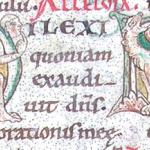 ILEXI
quoniam
exaudi-
uit dn̄s.
orationis meę